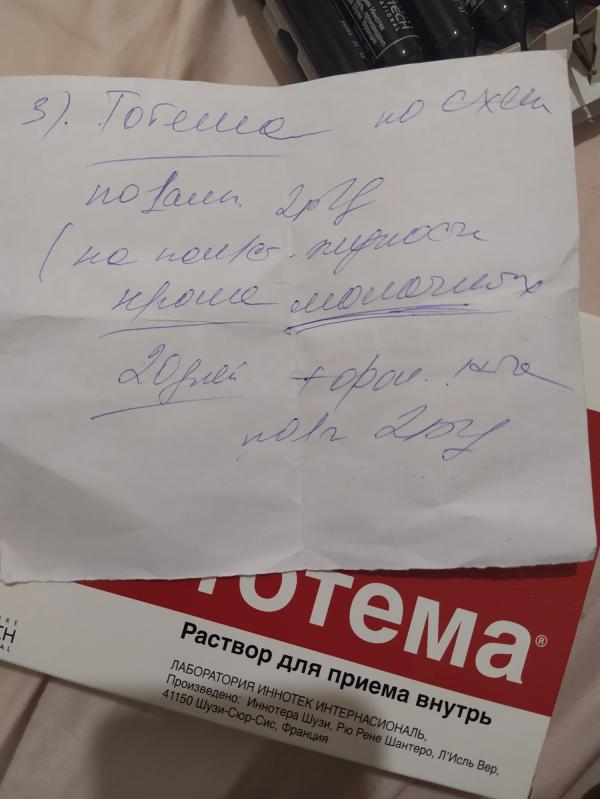 TECH
3). Тотема по схем
по 1 амп 2р/д
(на пол/ст. жидкости
кроме молочных
20 дней + фол. к-та
по 1т 2р/д
Тотема®
Раствор для приема внутрь
ЛАБОРАТОРИЯ ИННОТЕК ИНТЕРНАСИОНАЛЬ,
Произведено: Иннотера Шузи, Рю Рене Шантеро, Л'Исль Вер,
41150 Шузи-Сюр-Сис, Франция